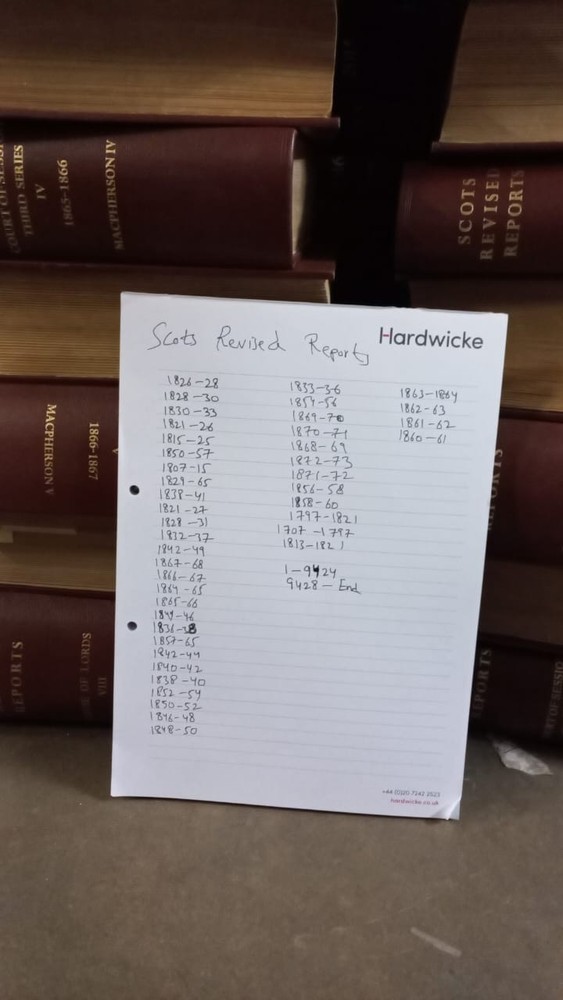 COURT OF SESSION
THIRD SERIES
IV
1865-1866
MACPHERSON IV
SCOTS
REVISED
REPORTS
MACPHERSON
V
1866-1867
REPORTS
OF LORDS
VIII
Hardwicke
Scots Revised Reports
1826-28
1828-30
1830-33
1821-26
1815-25
1850-57
1807-15
1829-65
1838-41
1821-27
1828-31
1832-37
1842-49
1867-68
1866-67
1864-65
1865-66
1844-46
1836-38
1857-65
1842-44
1840-42
1838-40
1852-54
1850-52
1846-48
1848-50
1833-36
1854-56
1869-70
1870-71
1868-69
1872-73
1871-72
1856-58
1858-60
1797-1821
1707-1797
1813-1821
1-9424
9428-End
1863-1864
1862-63
1861-62
1860-61
+44 (0)20 7242 2523
hardwicke.co.uk